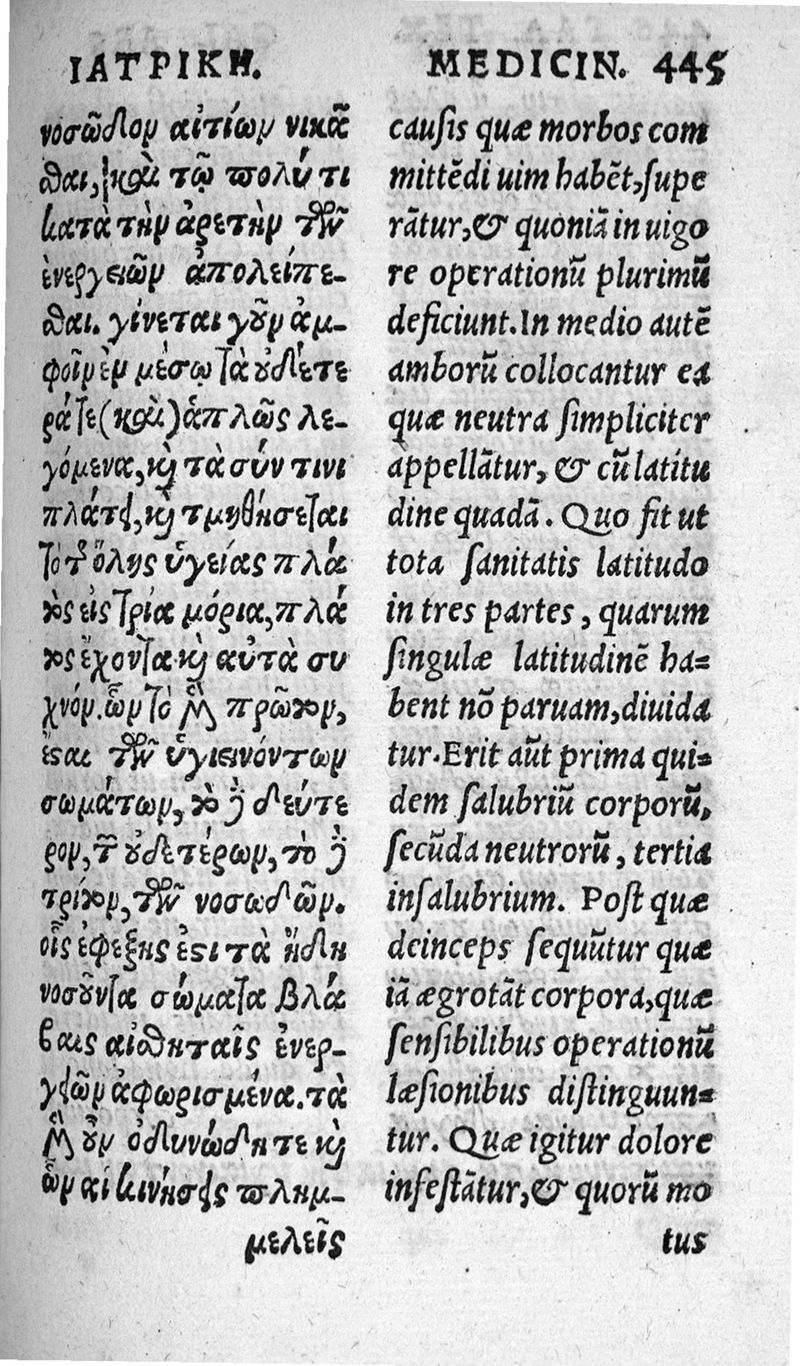 ΙΑΤΡΙΚΗ.
νοσωδῶν αἰτίων νικᾶ
σθαι, καὶ τῷ πολύ τι
κατὰ τὴν ἀρετὴν τῶν
ἐνεργειῶν ἀπολείπε-
σθαι. γίνεται γοῦν ἀμ-
φοῖν ἐν μέσῳ τὰ οὐδέτε
ρά τε (καὶ) ἁπλῶς λε-
γόμενα, καὶ τὰ σύν τινι
πλάτει, καὶ τμηθήσεται
τὸ τῆς ὅλης ὑγείας πλά
τος εἰς τρία μόρια, πλά
τος ἔχοντα καὶ αὐτὰ συ
χνόν. ὧν τὸ μὲν πρῶτον,
ἔσται τῶν ὑγιεινόντων
σωμάτων, τὸ δὲ δεύτε
ρον, τῶν οὐδετέρων, τὸ δὲ
τρίτον, τῶν νοσωδῶν.
οἷς ἐφεξῆς ἐστι τὰ ἤδη
νοσοῦντα σώματα βλά
βαις αἰσθηταῖς ἐνερ-
γειῶν ἀφωρισμένα. τὰ
μὲν οὖν ὀδυνώδη τε καὶ
ὧν αἱ κινήσεις πλημ-
μελεῖς
MEDICIN. 445
causis quæ morbos com
mittēdi uim habēt, supe
rātur, & quoniā in uigo
re operationū plurimū
deficiunt. In medio autē
amborū collocantur ea
quæ neutra simpliciter
appellātur, & cū latitu
dine quadā. Quo fit ut
tota sanitatis latitudo
in tres partes, quarum
singulæ latitudinē ha=
bent nō paruam, diuida
tur. Erit aūt prima qui=
dem salubriū corporū,
secūda neutrorū, tertia
insalubrium. Post quæ
deinceps sequūtur quæ
iā ægrotāt corpora, quæ
sensibilibus operationū
læsionibus distinguun=
tur. Quæ igitur dolore
infestātur, & quorū mo
tus